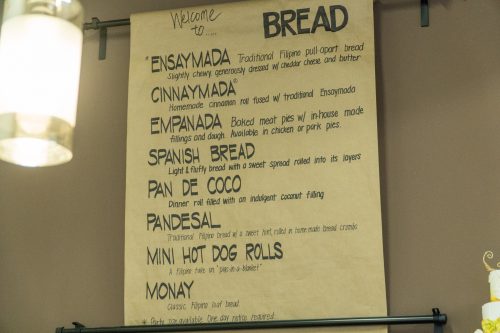 Welcome
to.....
BREAD
*ENSAYMADA Traditional Filipino pull-apart bread
Slightly chewy, generously dressed w/ cheddar cheese and butter
CINNAYMADA*
Homemade cinnamon roll fused w/ traditional Ensaymada
EMPANADA Baked meat pies w/ in-house made
fillings and dough. Available in chicken or pork pies.
SPANISH BREAD
Light & fluffy bread with a sweet spread rolled into its layers
PAN DE COCO
Dinner roll filled with an indulgent coconut filling
PANDESAL
Traditional Filipino bread w/ a sweet hint, rolled in home made bread crumbs
MINI HOT DOG ROLLS
A Filipino take on "pigs-in-a-blanket"
MONAY
Classic Filipino loaf bread
* Party size available. One day notice required.